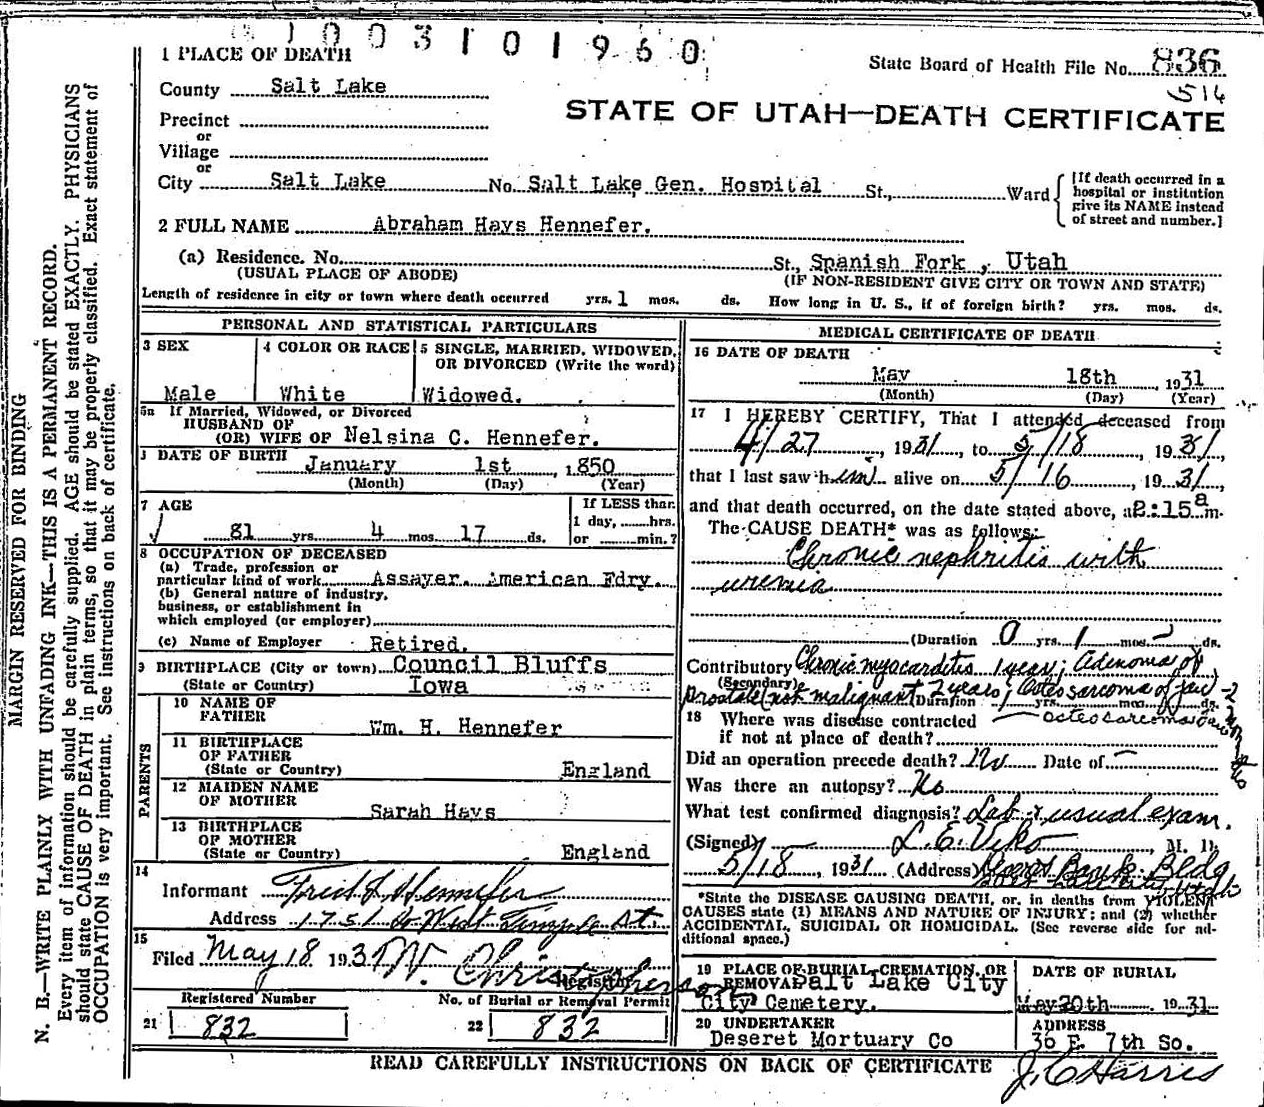 1003101960
1 PLACE OF DEATH
State Board of Health File No. 836
514
County Salt Lake
STATE OF UTAH—DEATH CERTIFICATE
Precinct
or
Village
or
City Salt Lake No. Salt Lake Gen. Hospital St., Ward
[If death occurred in a
hospital or institution
give its NAME instead
of street and number.]
2 FULL NAME Abraham Hays Hennefer.
(a) Residence. No. St., Spanish Fork, Utah
(USUAL PLACE OF ABODE) (IF NON-RESIDENT GIVE CITY OR TOWN AND STATE)
Length of residence in city or town where death occurred yrs. 1 mos. ds. How long in U. S., if of foreign birth? yrs. mos. ds.
PERSONAL AND STATISTICAL PARTICULARS
3 SEX
Male
4 COLOR OR RACE
White
5 SINGLE, MARRIED, WIDOWED,
OR DIVORCED (Write the word)
Widowed.
5a If Married, Widowed, or Divorced
HUSBAND OF
(OR) WIFE OF Nelsina C. Hennefer.
DATE OF BIRTH
January 1st, 1850
(Month) (Day) (Year)
7 AGE
81 yrs. 4 mos. 17 ds.
If LESS than
1 day, hrs.
or min.?
8 OCCUPATION OF DECEASED
(a) Trade, profession or
particular kind of work Assayer. American Fdry.
(b) General nature of industry,
business, or establishment in
which employed (or employer)
(c) Name of Employer Retired.
9 BIRTHPLACE (City or town) Council Bluffs
(State or Country) Iowa
PARENTS
10 NAME OF
FATHER
Wm. H. Hennefer
11 BIRTHPLACE
OF FATHER
(State or Country) England
12 MAIDEN NAME
OF MOTHER
Sarah Hays
13 BIRTHPLACE
OF MOTHER
(State or Country) England
14
Informant Fred J Hennefer
Address 1751 West Temple St.
15
Filed May 18 1931 W. Christopherson
Registrar
Registered Number
21 832
No. of Burial or Removal Permit
22 832
MEDICAL CERTIFICATE OF DEATH
16 DATE OF DEATH
May 18th, 1931
(Month) (Day) (Year)
17 I HEREBY CERTIFY, That I attended deceased from
4/27, 1931, to 5/18, 1931,
that I last saw him alive on 5/16, 1931,
and that death occurred, on the date stated above, at 2:15 a m.
The CAUSE DEATH* was as follows:
Chronic nephritis with
uremia
(Duration 0 yrs. 1 mos. ds.
Contributory Chronic myocarditis 1 year; Adenoma of
(Secondary)
prostate (not malignant 2 years; Osteosarcoma of jaw -2
(Duration yrs. mos. ds.
18 Where was disease contracted osteosarcoma
if not at place of death?
Did an operation precede death? No Date of —
Was there an autopsy? No
What test confirmed diagnosis? Lab & usual exam.
(Signed) L. E. Viko, M. D.
5/18, 1931 (Address) Bank Bldg
Utah
*State the DISEASE CAUSING DEATH, or, in deaths from VIOLENT
CAUSES state (1) MEANS AND NATURE OF INJURY; and (2) whether
ACCIDENTAL, SUICIDAL OR HOMICIDAL. (See reverse side for ad-
ditional space.)
19 PLACE OF BURIAL, CREMATION, OR
REMOVAL Salt Lake City
City Cemetery.
DATE OF BURIAL
May 20th 1931
20 UNDERTAKER
Deseret Mortuary Co
ADDRESS
36 E. 7th So.
READ CAREFULLY INSTRUCTIONS ON BACK OF CERTIFICATE
J. C. Harris
MARGIN RESERVED FOR BINDING
N. B.—WRITE PLAINLY WITH UNFADING INK—THIS IS A PERMANENT RECORD.
Every item of information should be carefully supplied. AGE should be stated EXACTLY. PHYSICIANS
should state CAUSE OF DEATH in plain terms, so that it may be properly classified. Exact statement of
OCCUPATION is very important. See instructions on back of certificate.